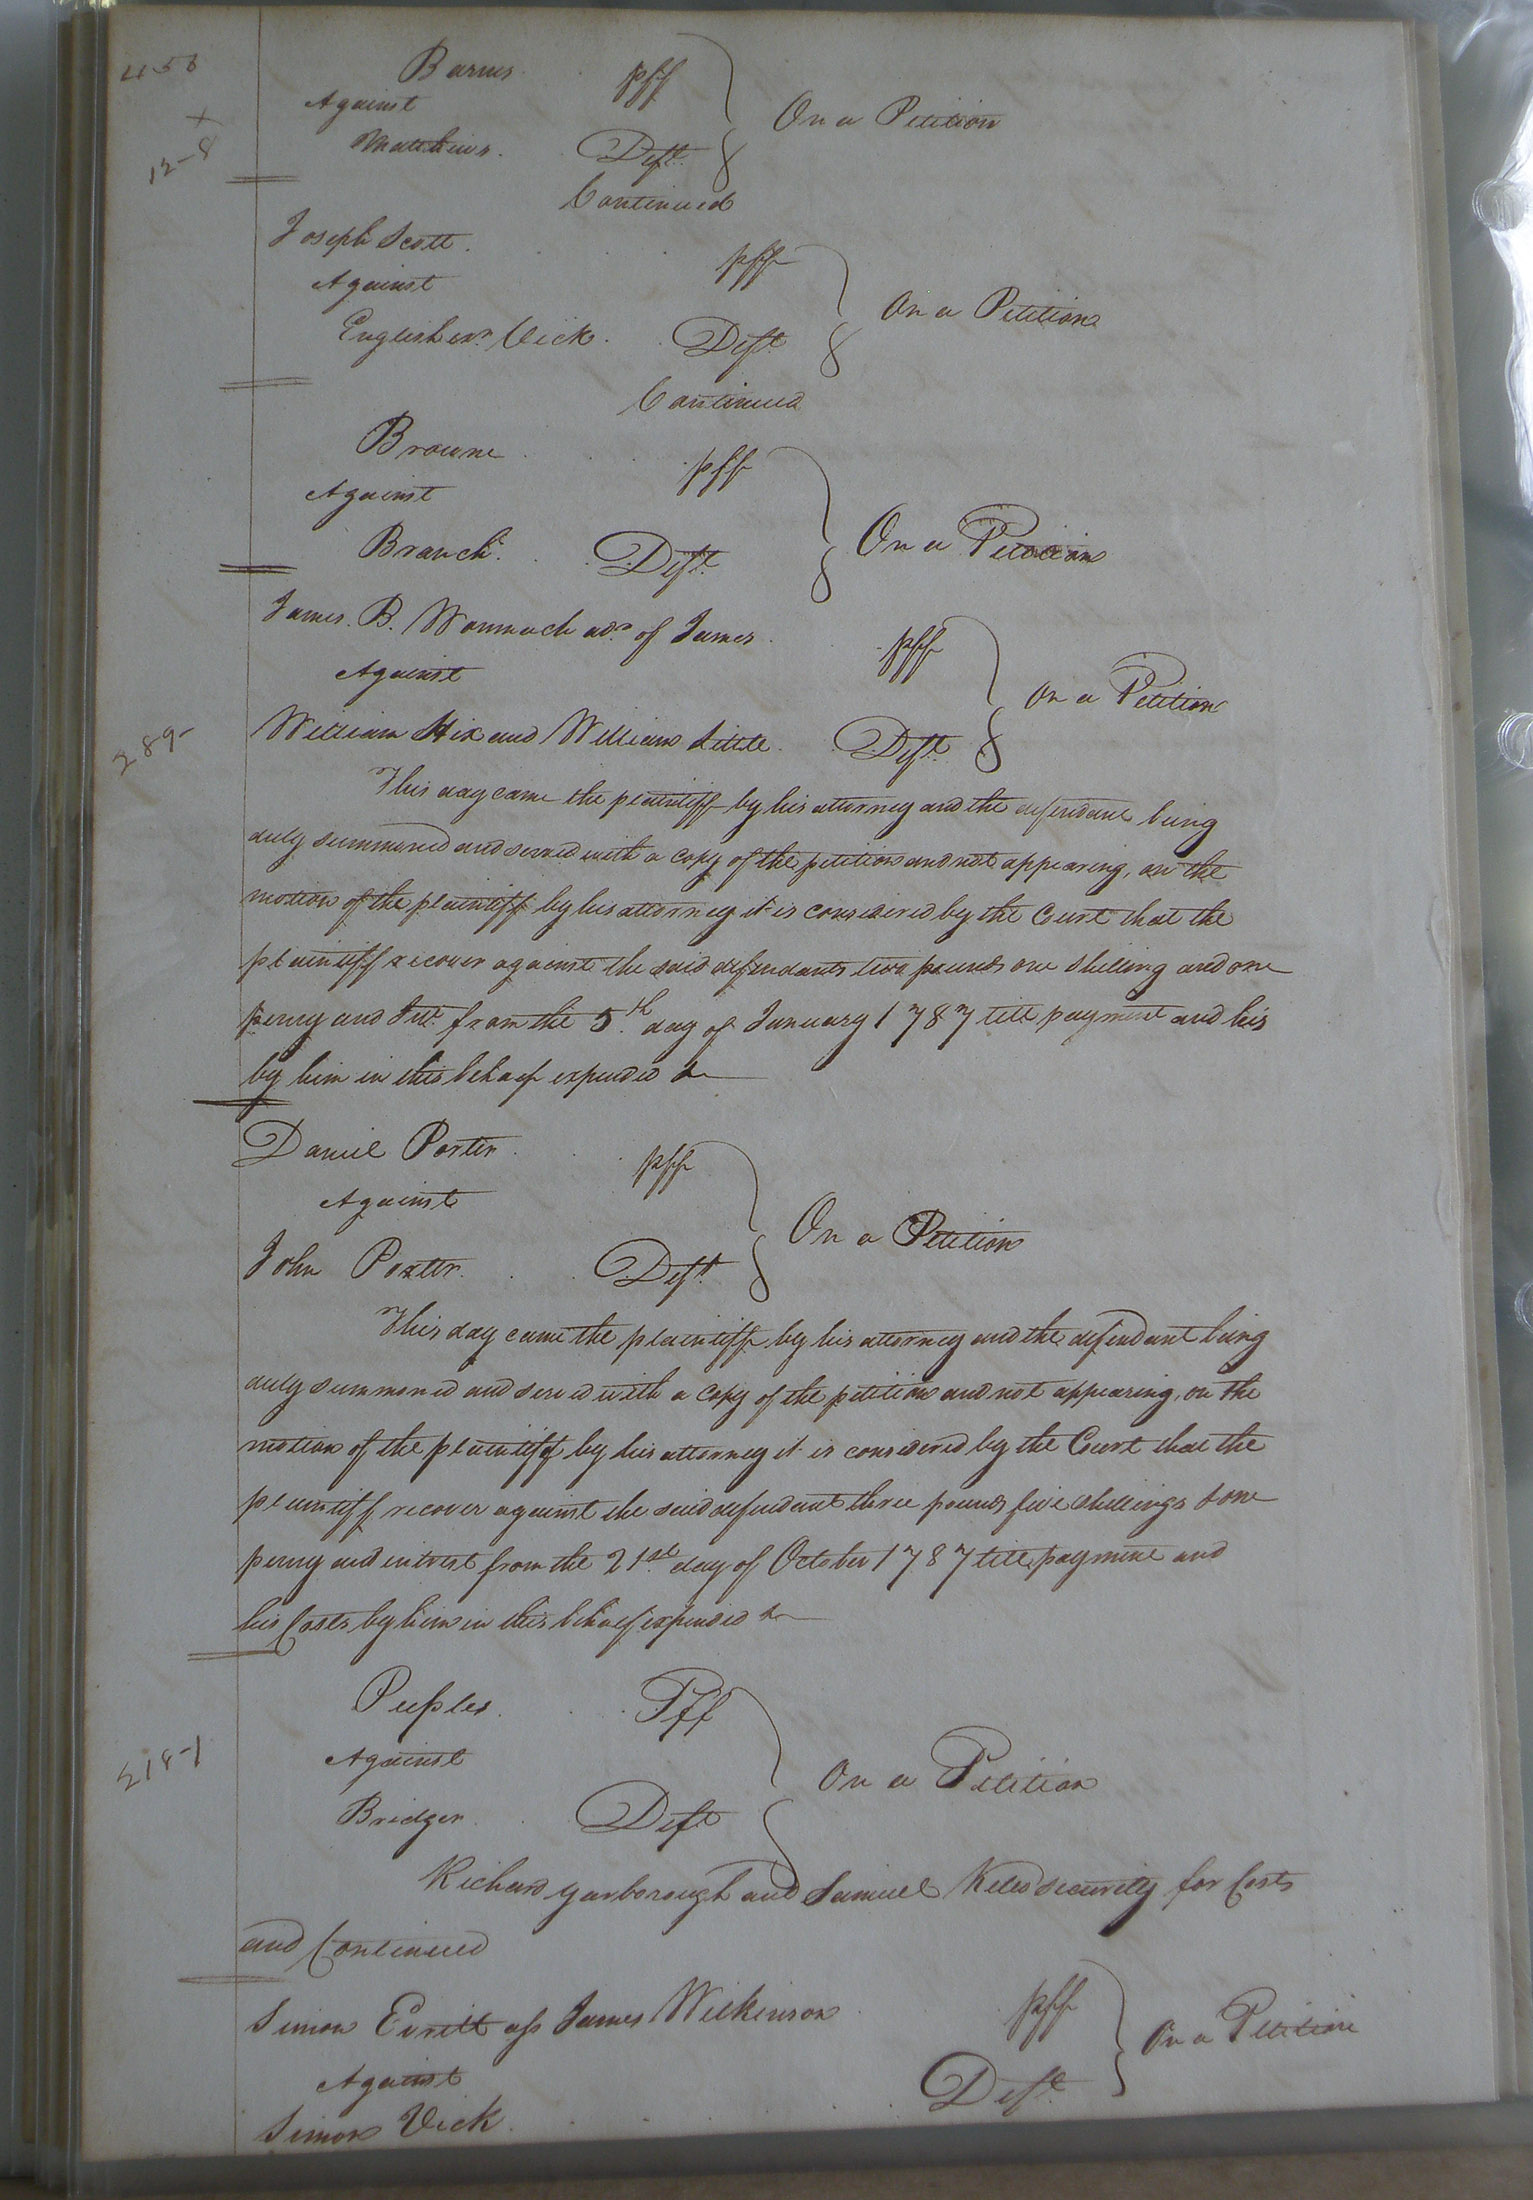 458
Barnes pff
Against
On a Petition
Matthews. Deft.
12-8
Continued
Joseph Scott. pff
Against
On a Petition
English exr. Vick. Deft
Continued
Browne pff
Against
On a Petition
Branch. Deft.
James. B. Wommack adr. of James pff
Against
On a Petition
William Hix and William Little. Deft.
289-
This day came the plaintiff by his attorney and the defendant being
duly summoned and served with a copy of the petition and not appearing, on the
motion of the plaintiff by his attorney it is considered by the Court that the
plaintiff recover against the said defendants two pounds one shilling and one
penny and Int. from the 5th. day of January 1787 till payment and his
by him in this behalf expended &
Daniel Porter pff
Against
On a Petition
John Porter. Deft.
This day came the plaintiff by his attorney and the defendant being
duly summoned and served with a copy of the petition and not appearing, on the
motion of the plaintiff by his attorney it is considered by the Court that the
plaintiff recover against the said defendant three pounds five shillings & one
penny and intrest from the 21st. day of October 1787 till payment and
his Costs by him in this behalf expended &
Peeples Pff
Against
On a Petition
218-1
Bridger Deft
Richard Yarborough and Samuel security for Costs
and Continued
Simon Evritt ass James Wilkinson pff
On a Petition
Against Deft
Simon Vick.